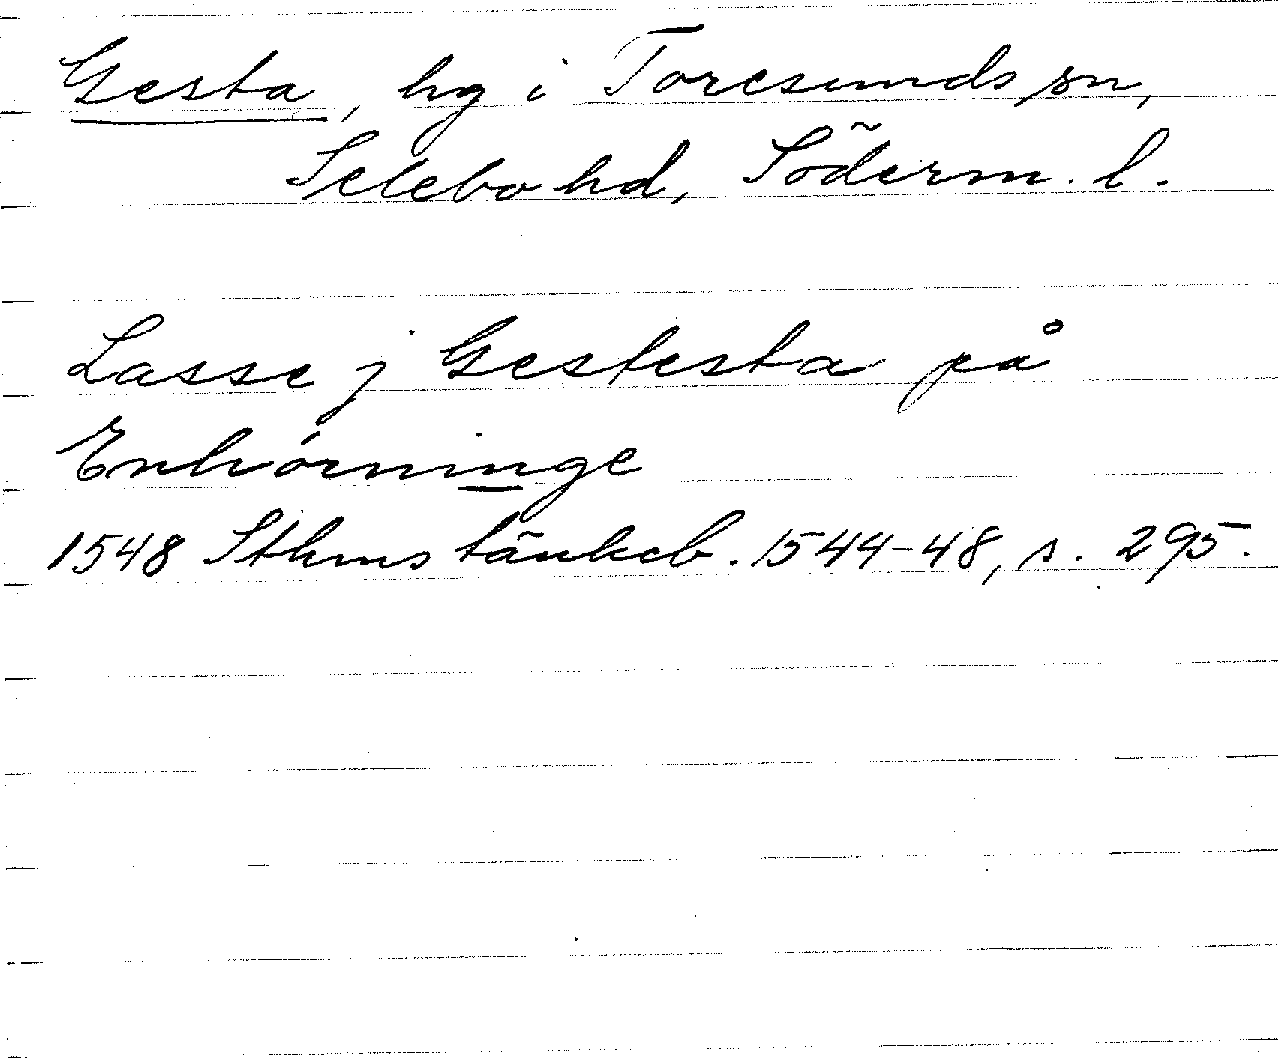 Gesta, hg i Toresunds sn,
Selebo hd, Söderm. l.
Lasse j Gestesta på
Enhörninge
1548 Sthms tänkeb. 1544-48, s. 295.